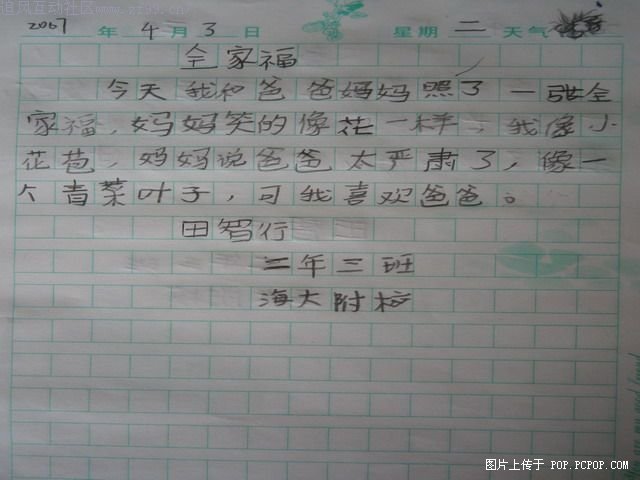 追风互动社区
2007 年 4 月 3 日 星期 二 天气
全家福
今天我和爸爸妈妈照了一张全
家福,妈妈笑的像花一样,我像小
花苞,妈妈说爸爸太严肃了,像一
个青菜叶子,可我喜欢爸爸。
田智行
二年三班
海大附校
图片上传于 POP.PCPOP.COM